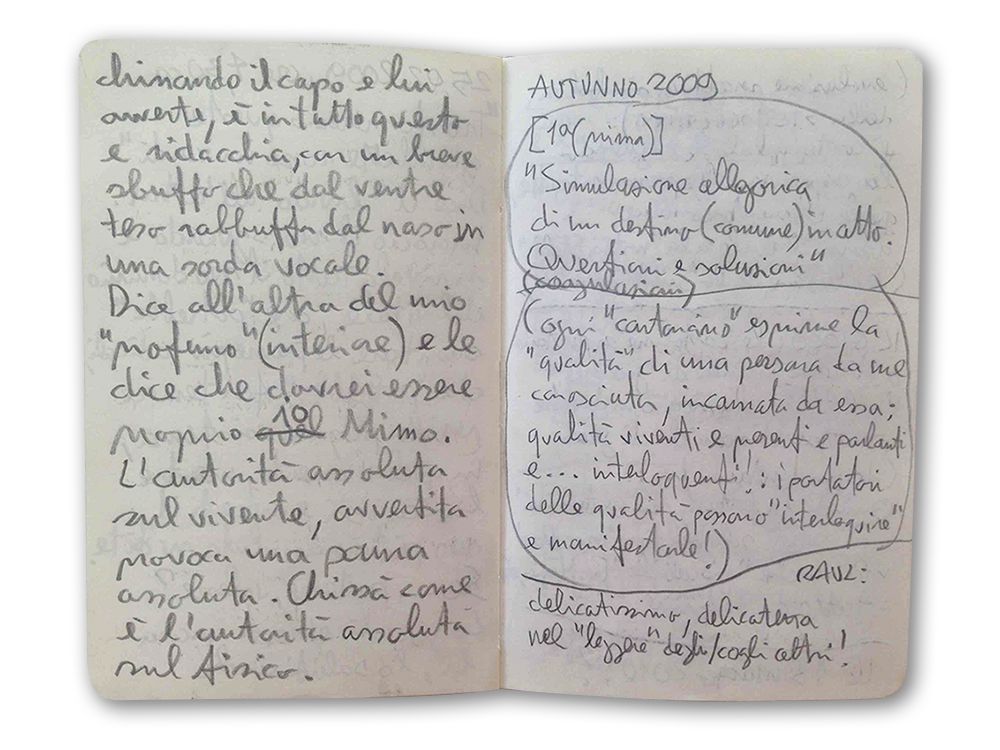 chinando il capo e lui
avverte, è in tutto questo
e ridacchia, con un breve
sbuffo che dal ventre
teso rabbuffa dal naso in
una sorda vocale.
Dice all'altra del mio
"profumo" (interiore) e le
dice che dovrei essere
proprio quel 10 Mimo.
L'autorità assoluta
sul vivente, avvertita
provoca una paura
assoluta. Chissà come
è l'autorità assoluta
sul fisico.
AUTUNNO 2009
[1a(prima)]
"Simulazione allegorica
di un destino (comune) in atto.
Questioni e soluzioni"
(coagulazioni)
(ogni "centonano" esprime la
"qualità", di una persona da me
conosciuta, incarnata da essa;
qualità viventi e presenti e parlanti
e... interloquenti!: i portatori
delle qualità possono "interloquire"
e manifestarle!)
RAUL:
delicatissimo, delicatezza
nel "leggere" degli/cogli altri!